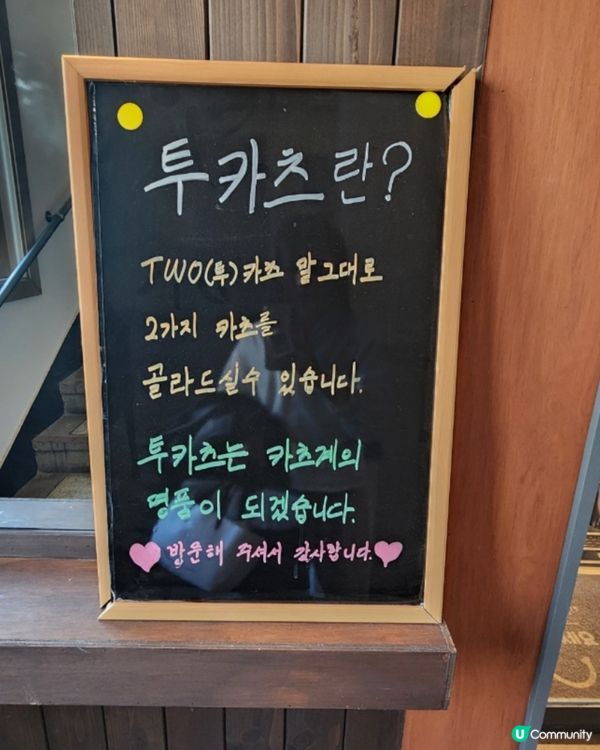 투카츠란?
TWO(투)카츠 말그대로
2가지 카츠를
골라드실수 있습니다.
투카츠는 카츠계의
명품이 되겠습니다.
방문해 주셔서 감사합니다.
U Community